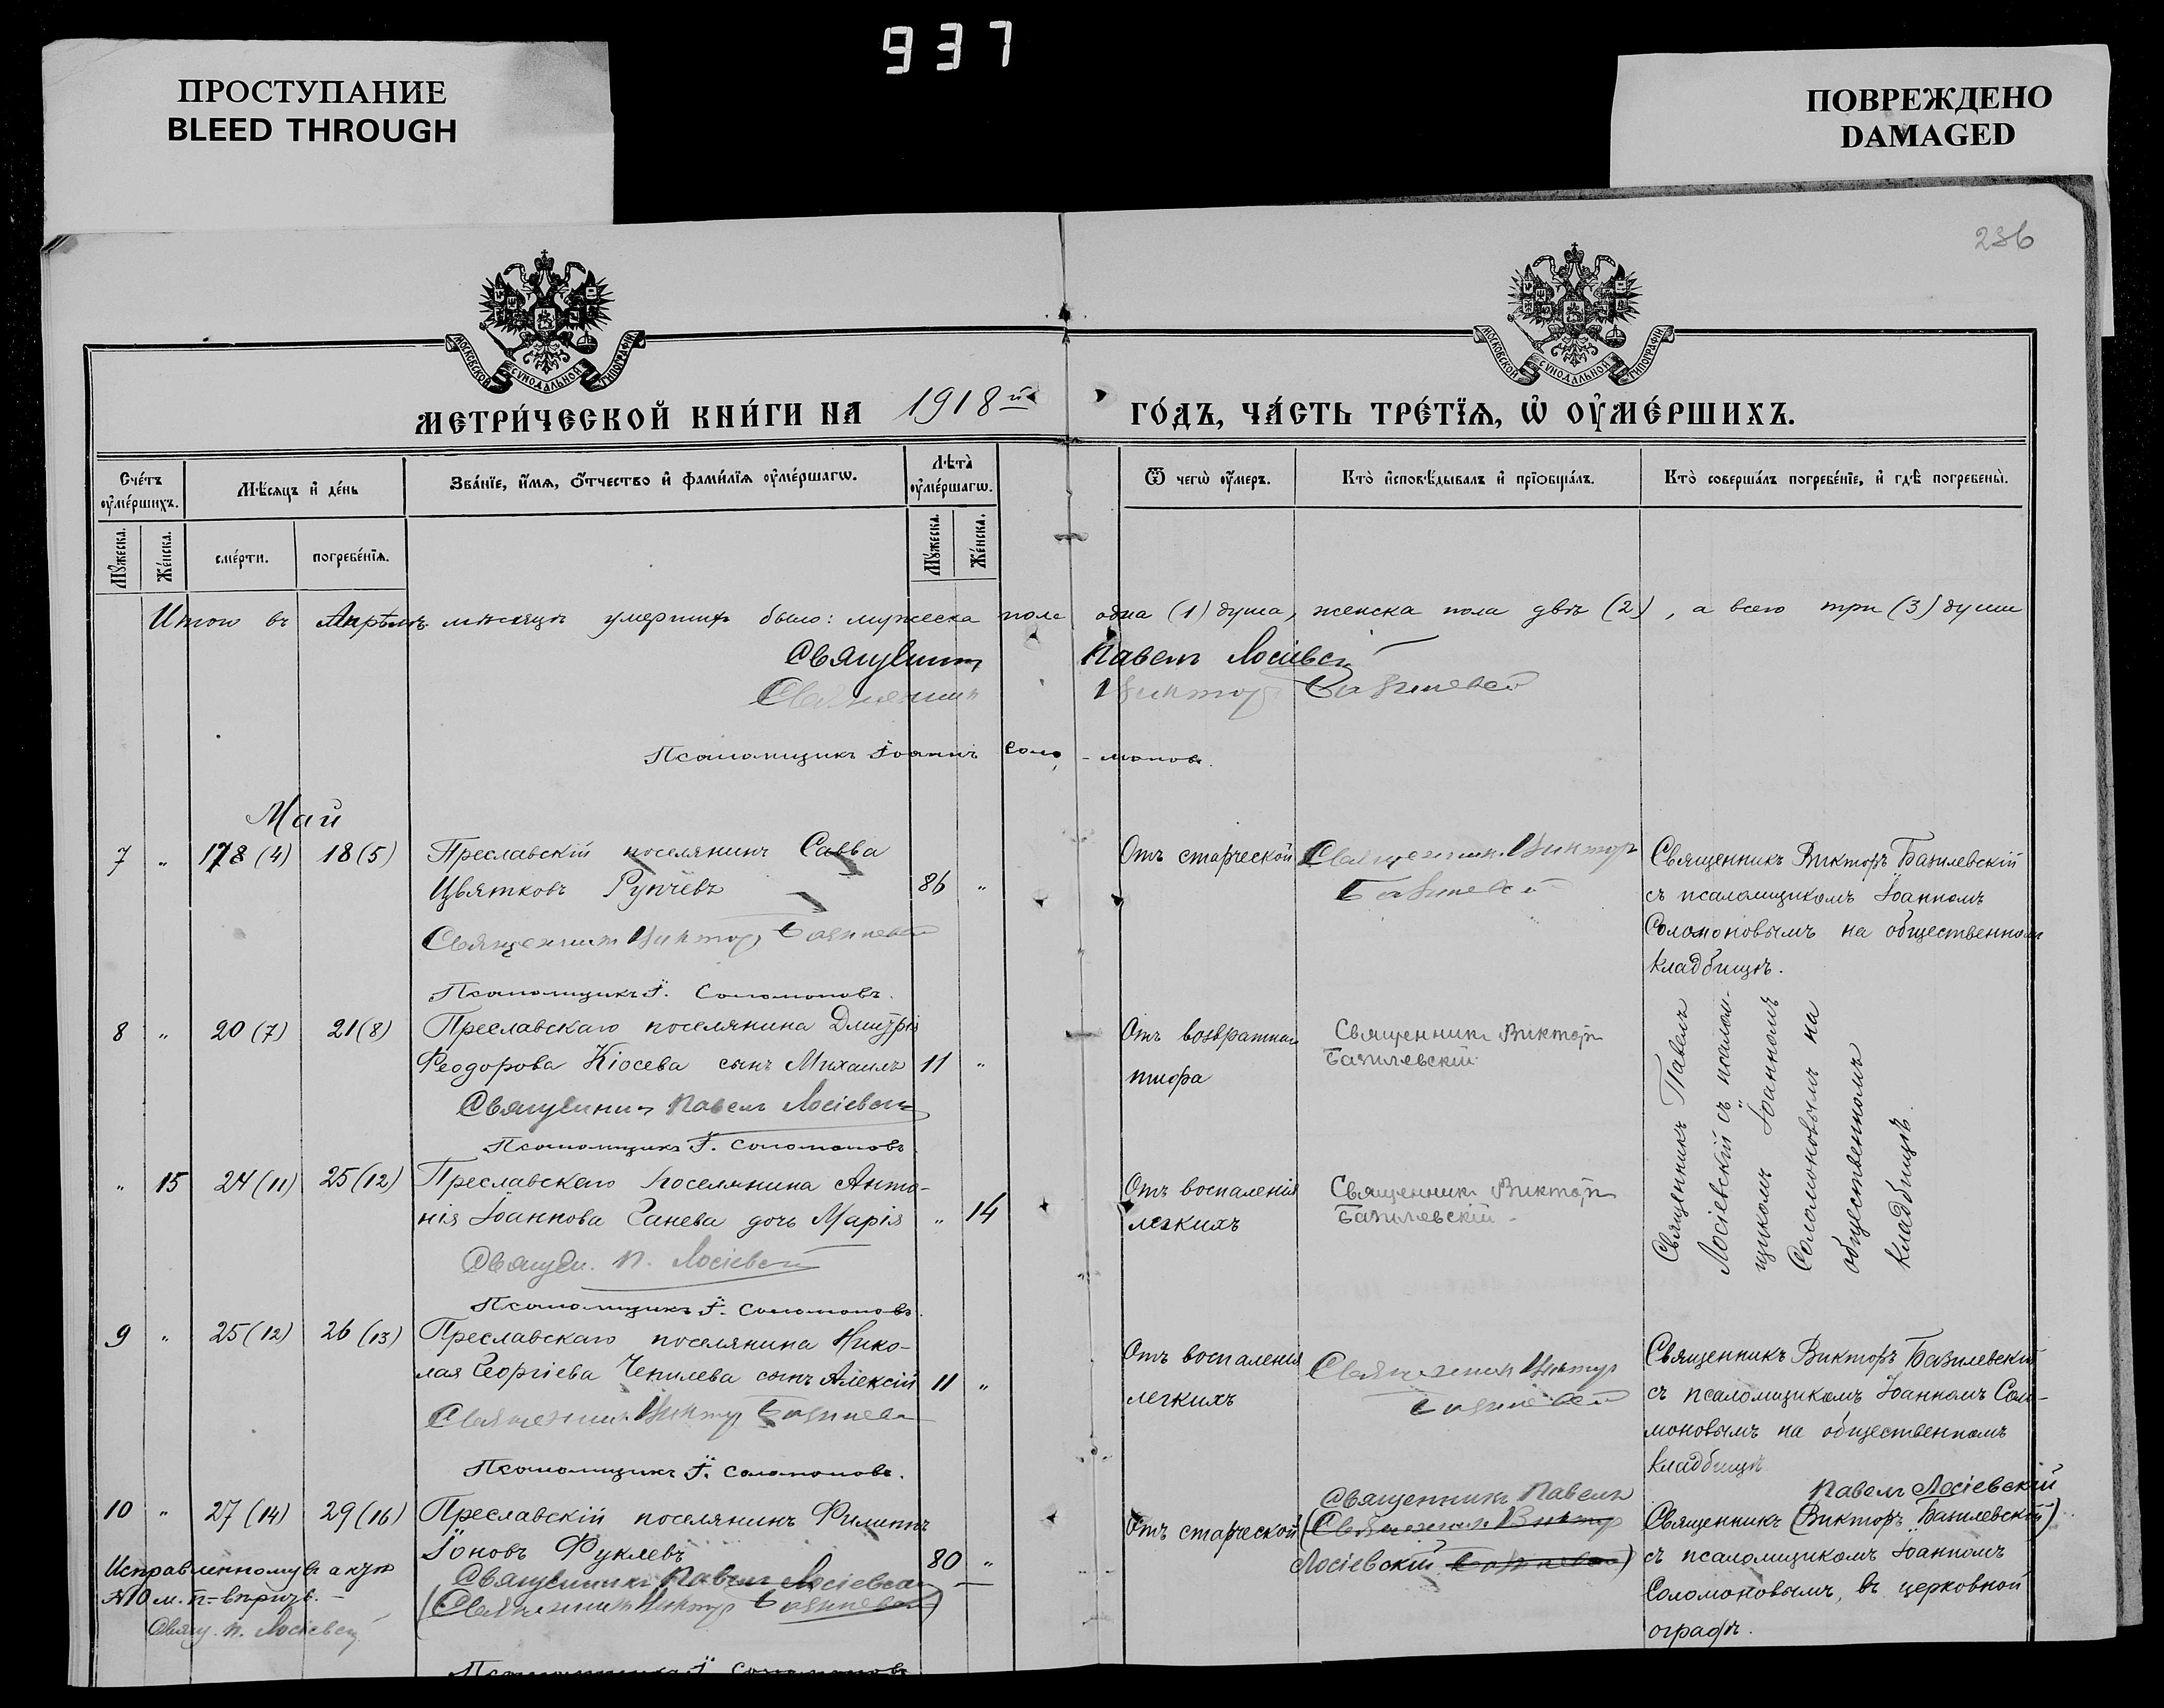 937
ПРОСТУПАНИЕ
BLEED THROUGH
ПОВРЕЖДЕНО
DAMAGED
236
МОСКОВСКОЙ СѴНОДАЛЬНОЙ ТИПОГРАФІИ
МОСКОВСКОЙ СѴНОДАЛЬНОЙ ТИПОГРАФІИ
МЕТРИ́ЧЕСКОЙ КНИ́ГИ НА 1918 й ГО́ДЪ, ЧА́СТЬ ТРЕ́ТЇѦ, Ѡ҆ ОУ҆МЕ́РШИХЪ.
Сче́тъ оу҆ме́ршихъ.
Мѣ́сяцъ и҆ де́нь
Зва́нїе, и҆́мѧ, ѻ҆́тчество и҆ фами́лїѧ оу҆ме́ршагѡ.
Лѣта̀ оу҆ме́ршагѡ.
Ѿ чегѡ̀ оу҆́меръ.
Кто̀ и҆сповѣ́дывалъ и҆ прїѡбща́лъ.
Кто̀ соверша́лъ погребе́нїе, и҆ гдѣ̀ погребены̀.
Мꙋ́жеска.
Же́нска.
сме́рти.
погребе́нїѧ.
Мꙋ́жеска.
Же́нска.
Итого въ Апрѣлѣ мѣсяцѣ умершихъ было: мужеска пола одна (1) душа, женска пола двѣ (2), а всего три (3) души
Священникъ Павелъ Лосіевскій
Священникъ Викторъ Базилевскій
Псаломщикъ Іоаннъ Соло-моновъ.
Май
7 " 178 (4) 18 (5) Преславскій поселянинъ Савва
Цвятковъ Рупчевъ 86 "
Священникъ Викторъ Базилевскій
Псаломщикъ І. Соломоновъ.
Отъ старческой
Священникъ Викторъ
Базилевскій
Священникъ Викторъ Базилевскій
съ псаломщикомъ Іоанномъ
Соломоновымъ на общественномъ
кладбищѣ.
8 " 20 (7) 21 (8) Преславскаго поселянина Дмитрія
Феодорова Кіосева сынъ Михаилъ 11 "
Священникъ Павелъ Лосіевскій
Псаломщикъ І. Соломоновъ
Отъ возвратнаго
тифа
Священникъ Викторъ
Базилевскій
Священникъ Павелъ
Лосіевскій съ псалом-
щикомъ Іоанномъ
Соломоновымъ на
общественномъ
кладбищѣ.
" 15 24 (11) 25 (12) Преславскаго поселянина Анто-
нія Іоаннова Ганева дочь Марія " 14
Священ. П. Лосіевскій
Псаломщикъ І. Соломоновъ.
Отъ воспаленія
легкихъ
Священникъ Викторъ
Базилевскій
9 " 25 (12) 26 (13) Преславскаго поселянина Нико-
лая Георгіева Чепилева сынъ Алексій 11 "
Священникъ Викторъ Базилевскій
Псаломщикъ І. Соломоновъ.
Отъ воспаленія
легкихъ
Священникъ Викторъ
Базилевскій
Священникъ Викторъ Базилевскій
съ псаломщикомъ Іоанномъ Соло-
моновымъ на общественномъ
кладбищѣ
10 " 27 (14) 29 (16) Преславскій поселянинъ Филиппъ
Іоновъ Фуклевъ 80 "
Священникъ Павелъ Лосіевскій
(Священникъ Викторъ Базилевскій)
Псаломщикъ І. Соломоновъ
Исправленному въ актѣ
№10 м. п.
Свящ. П. Лосіевскій
Отъ старческой
Священникъ Павелъ
(Священникъ Викторъ
Лосіевскій Базилевскій)
Павелъ Лосіевскій
Священникъ (Викторъ Базилевскій)
съ псаломщикомъ Іоанномъ
Соломоновымъ, въ церковной
оградѣ.